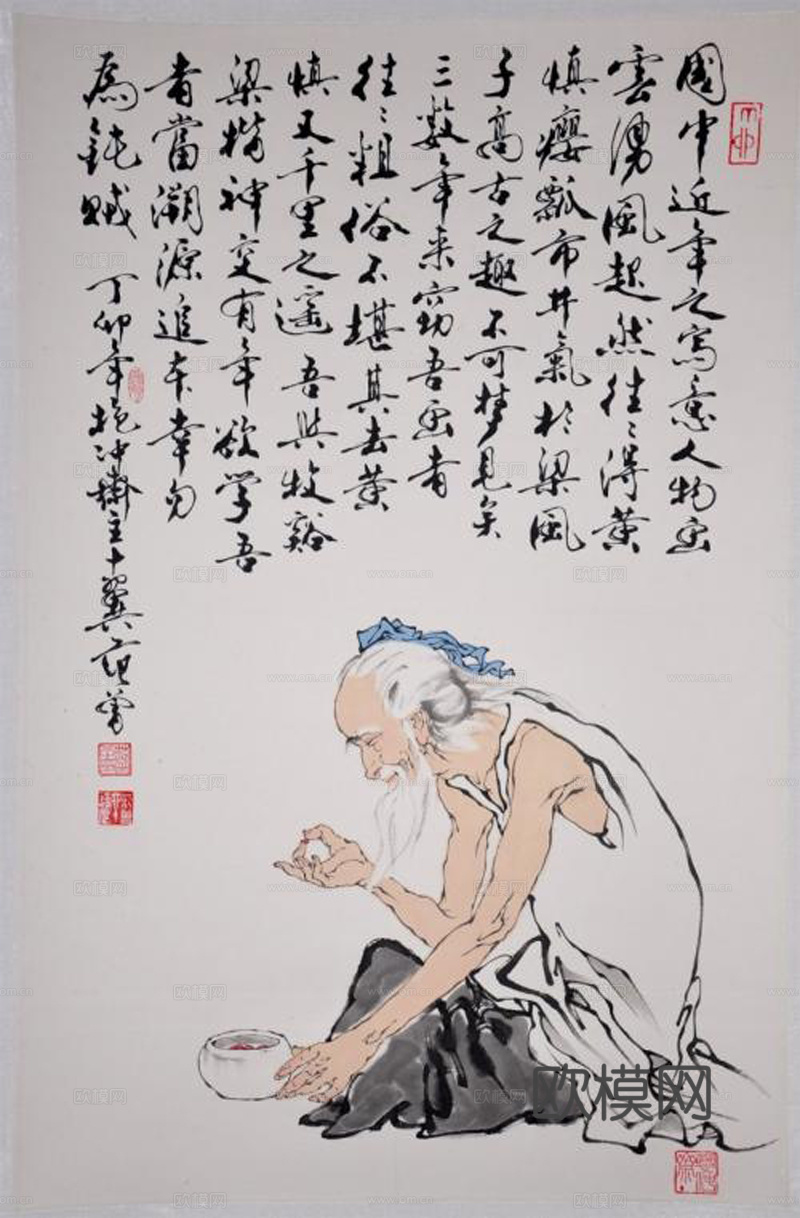 國中近年之寫意人物畫
雲湧風起然往〻得黃
慎癭瓢市井氣於梁風
子高古之趣不可梦見矣
三數年來竊吾畫者
往〻粗俗不堪其去黃
慎又千里之遙吾與牧谿
梁楷神交有年欲学吾
者當溯源追本幸勿
為鈍賊 丁卯年抱冲齋主十翼范曾
欧模网